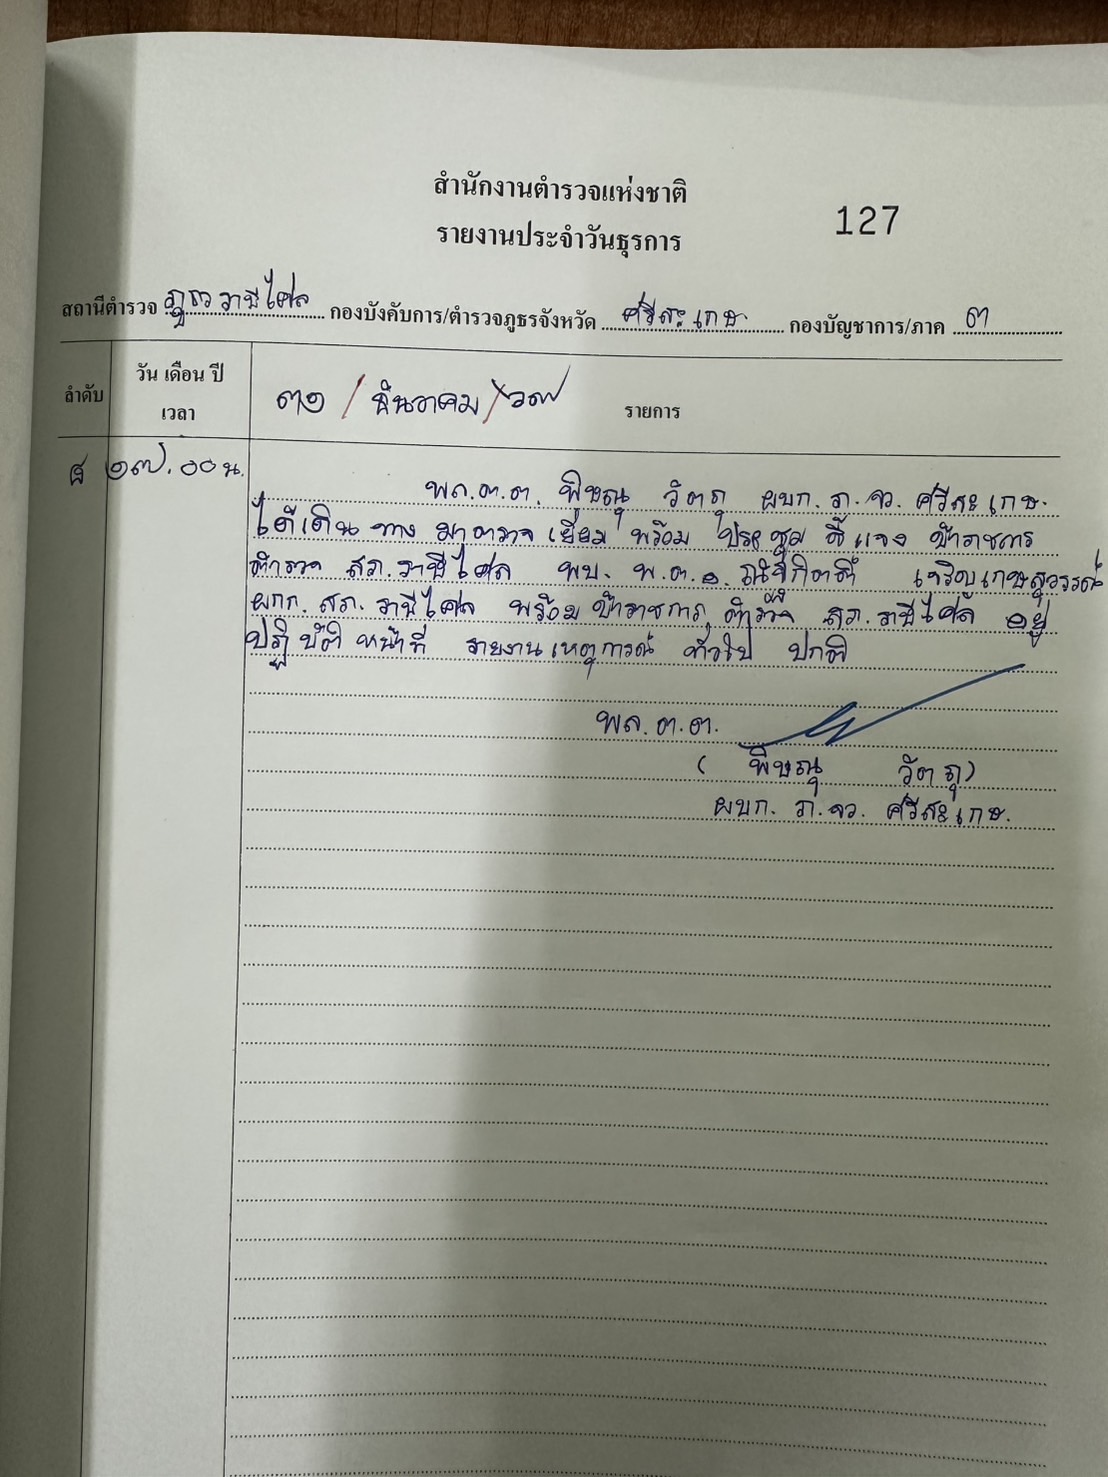 สำนักงานตำรวจแห่งชาติ
รายงานประจำวันธุรการ
127
สถานีตำรวจ ภูธร ราษีไศล กองบังคับการ/ตำรวจภูธรจังหวัด ศรีสะเกษ กองบัญชาการ/ภาค ๓
ลำดับ วัน เดือน ปี เวลา ๓๑ / ธันวาคม / รายการ
๘ ๑๗.๐๐ น.
พล.ต.ต. พิษณุ วัตถุ ผบก.ภ.จว. ศรีสะเกษ.
ได้เดินทาง มาตรวจเยี่ยม พร้อม ประชุม ชี้แจง ข้าราชการ
ตำรวจ สภ.ราษีไศล พบ. พ.ต.อ. เจริญเกษสุวรรณ์
ผกก. สภ.ราษีไศล พร้อม ข้าราชการ ตำรวจ สภ.ราษีไศล อยู่
ปฏิบัติ หน้าที่ รายงานเหตุการณ์ ทั่วไป ปกติ
พล.ต.ต.
( พิษณุ วัตถุ)
ผบก. ภ.จว. ศรีสะเกษ.